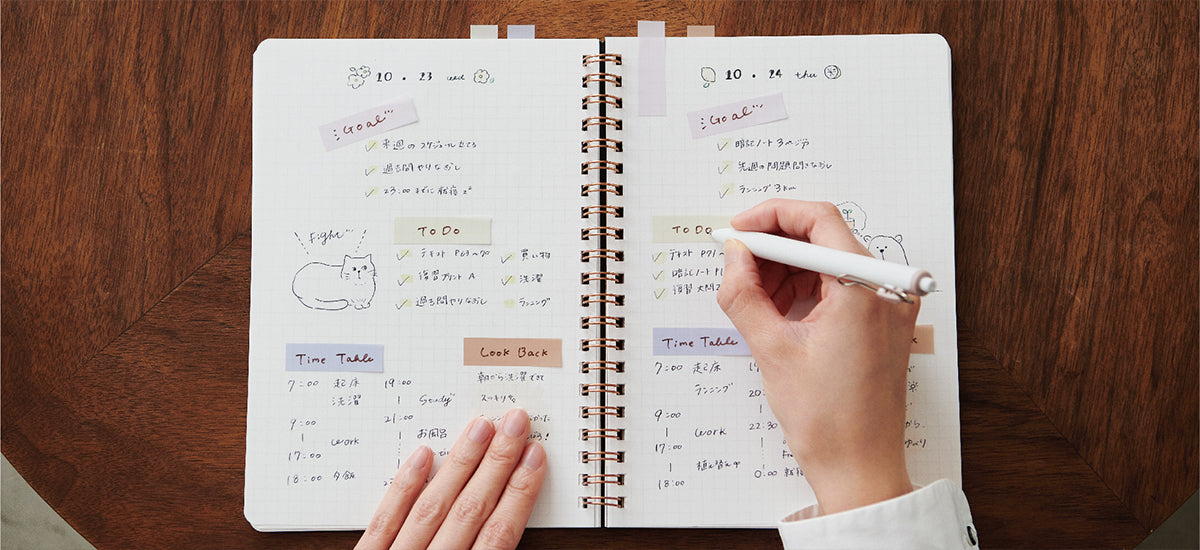 10 . 23 wed
Goal
来週のスケジュールたてる
過去問やりなおし
23:00までに就寝
To Do
テキスト P63~70
復習プリント A
過去問やりなおし
買い物
洗濯
ランニング
Fight
Time Table
7:00 起床
洗濯
9:00
work
17:00
18:00 夕飯
19:00
Study
21:00
お風呂
Look Back
朝から洗濯できて
スッキリ
10 . 24 thu
Goal
暗記ノート 3ページ分
先週の問題解きなおし
ランニング 3km
To Do
テキスト P71~
暗記ノート P1
復習
Time Table
7:00 起床
ランニング
9:00
work
17:00
植え替え
18:00
22:30
0:00